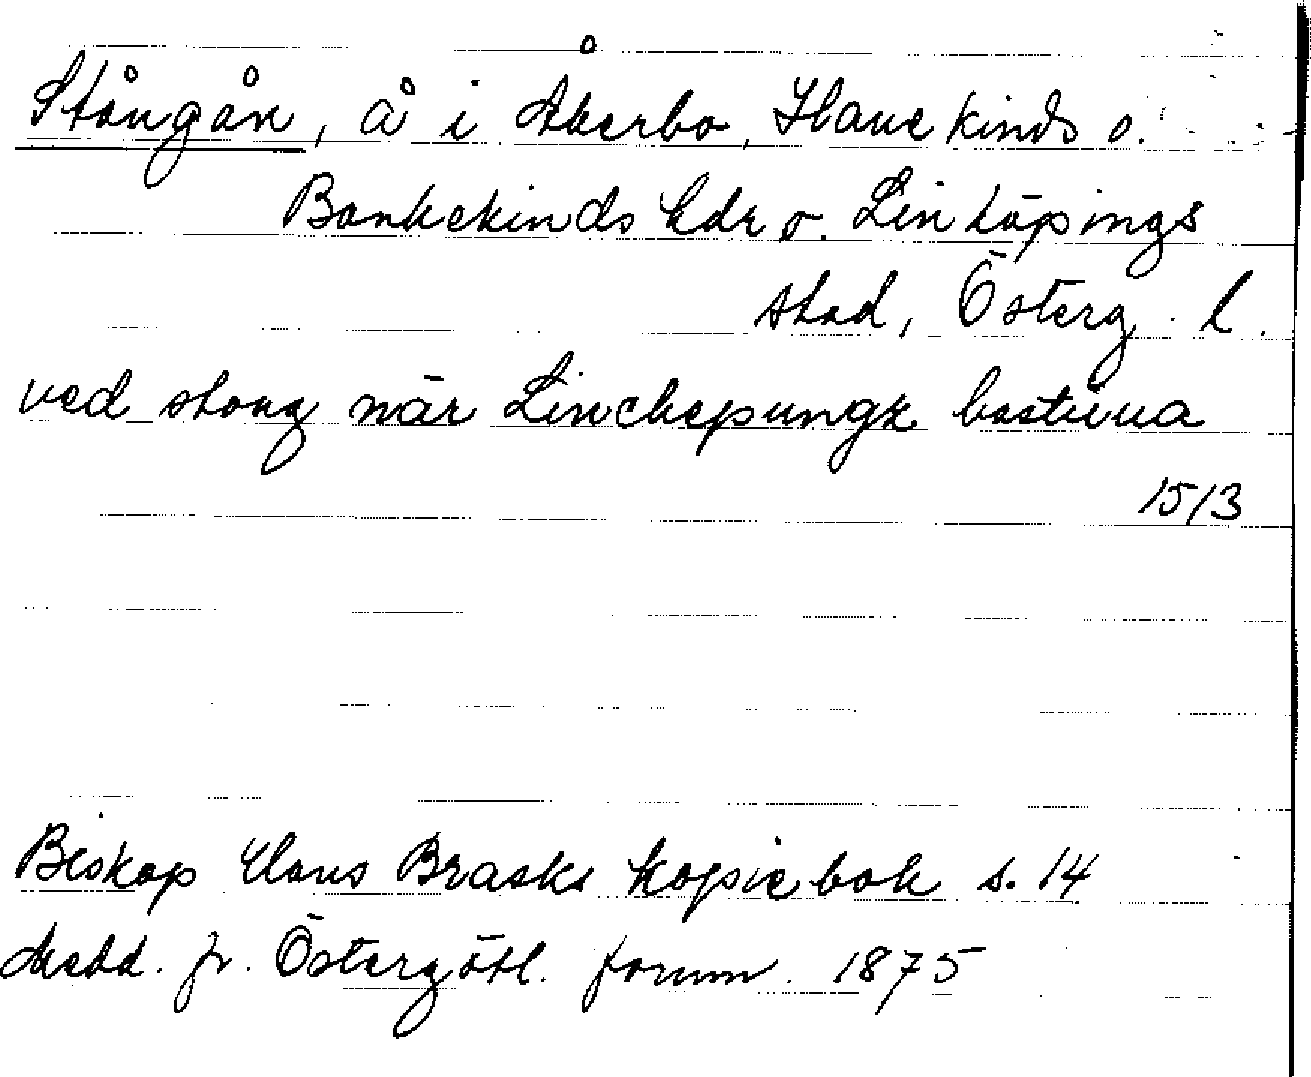 Stångån, å i Åkerbo, Hanekinds o.
Bankekinds hdr o. Linköpings
stad, Österg. l.
ved stong när Linchepungx bastuua
1513
Biskop Hans Brasks kopiebok s. 14
Medd. fr. Östergötl. fornm. 1875